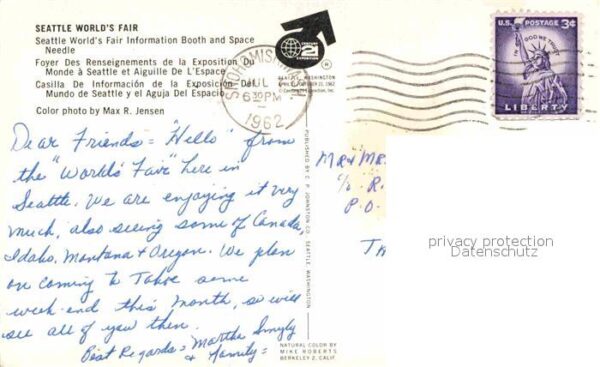 SEATTLE WORLD'S FAIR
Seattle World's Fair Information Booth and Space
Needle
Foyer Des Renseignements de la Exposition Du
Monde à Seattle et Aiguille De L'Espace
Casilla De Información de la Exposición Del
Mundo de Seattle y el Aguja Del Espacio
Color photo by Max R. Jensen
SNOHOMISH
JUL
6 30 PM
1962
U.S. POSTAGE 3¢
IN GOD WE TRUST
LIBERTY
Dear Friends = "Hello" from
the "World's Fair" here in
Seattle. We are enjoying it very
much, also seeing some of Canada,
Idaho, Montana & Oregon. We plan
on coming to Tahoe some
week-end this month, so will
see all of you then.
Best Regards = Martha
& family =
PUBLISHED BY C. P. JOHNSTON CO. SEATTLE, WASHINGTON
NATURAL COLOR BY
MIKE ROBERTS
BERKELEY 2, CALIF.
MR & MR
c/o R.
P.O.
privacy protection
Datenschutz